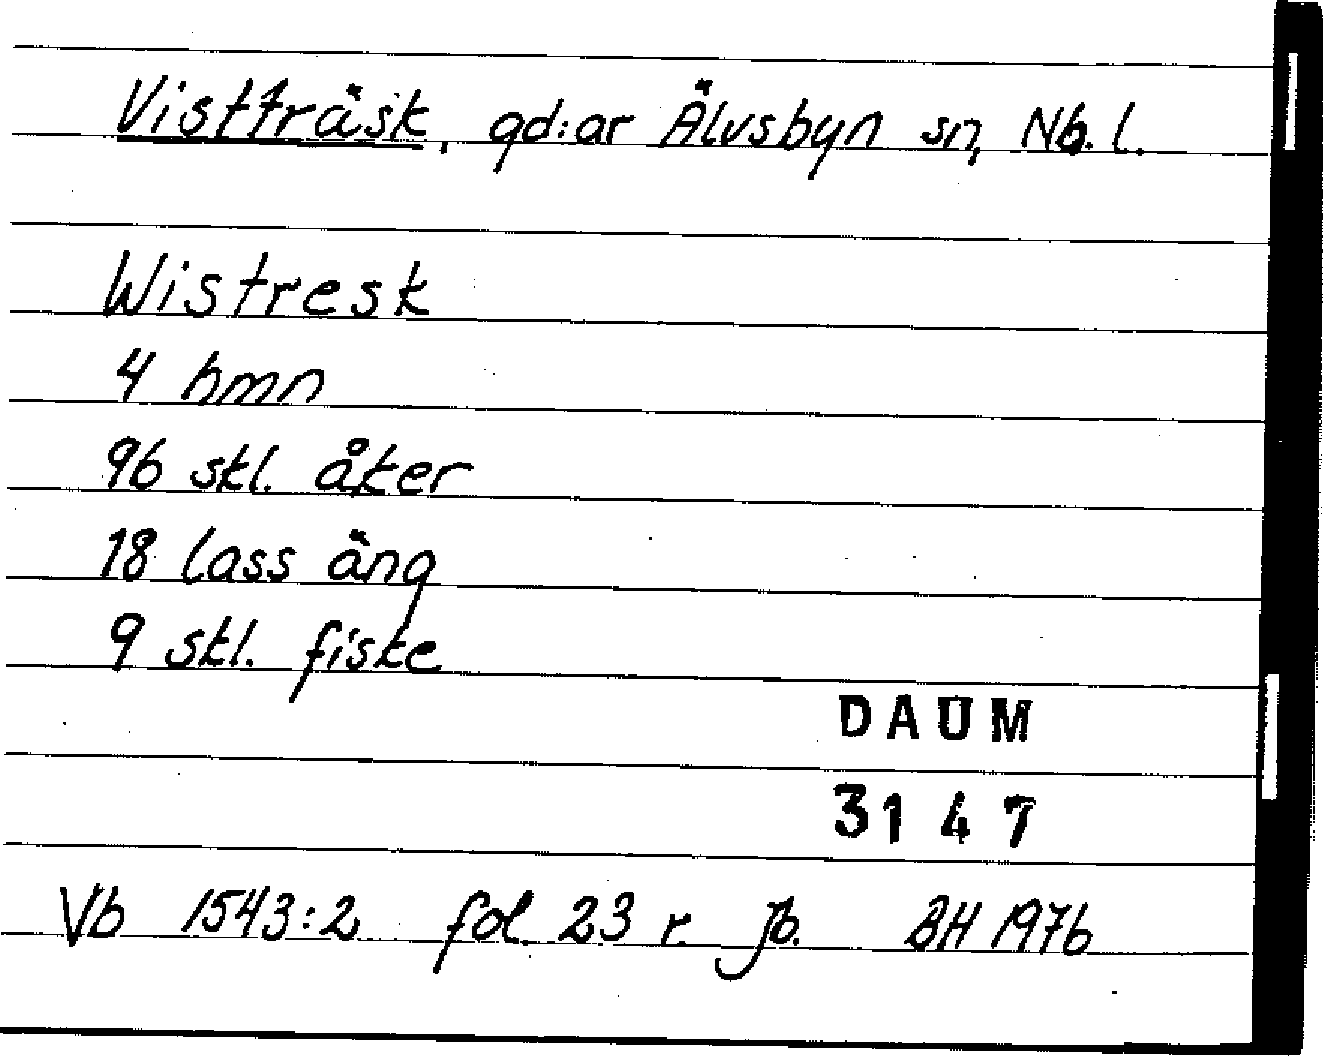 Vistträsk, gd:ar Älvsbyn sn, Nb. l.
Wistresk
4 hmn
96 skl. åker
18 lass äng
9 skl. fiske
DAUM
3147
Vb 1543:2 fol. 23 r. Jb. BH 1976